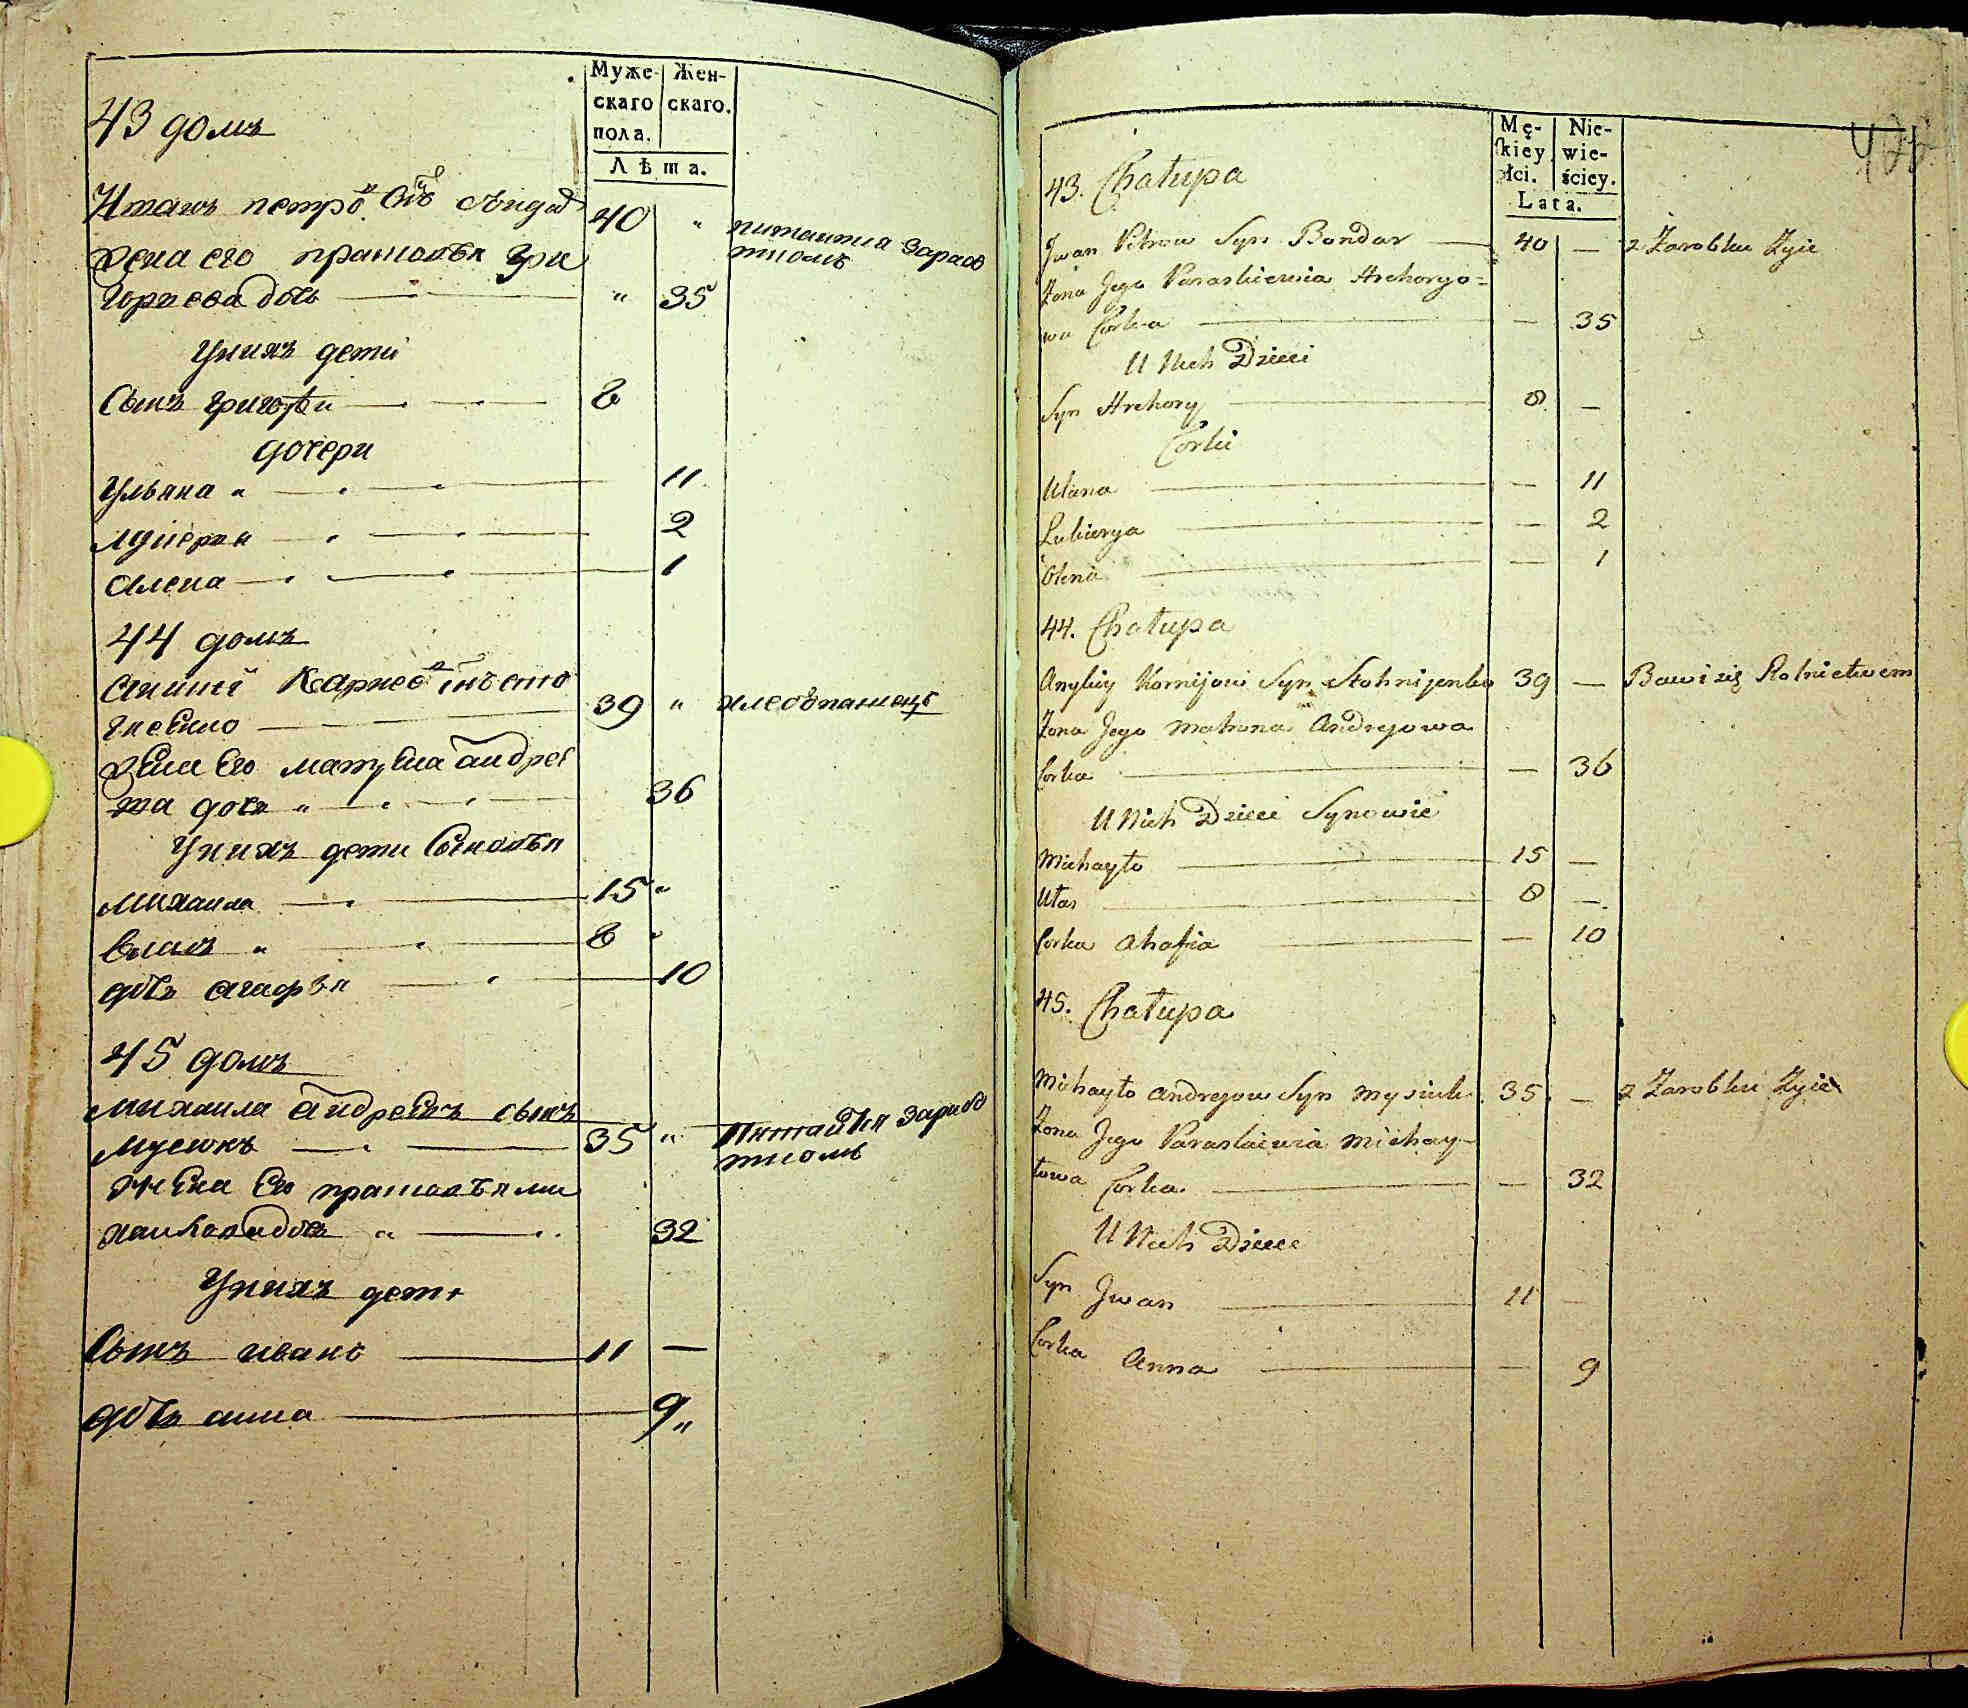 Муже- Жен-
скаго скаго.
пола.
Лѣта.
43 домъ
40 " питаитца зараб
жена его прасковья гри
тиомъ
горьева дочь " 35
У нихъ дети
Сынъ григорѣи 8
дочери
Ульяна " 11
лукерья 2
алена 1
44 домъ
39 " хлебопашецъ
жена Его матрена андрее
ва дочь " 36
У нихъ дети Сыновья
михаила 15 "
власъ " 8 "
дочь агафья 10
45 домъ
михаила андреевъ сынъ
мусюкъ 35 " питаитца зараб
тиомъ
жена Его прасковья ми
хайлова дочь " 32
У нихъ дети
Сынъ иванъ 11 —
дочь анна 9 "
Mę- Nie-
skiey wie-
płci. ściey.
Lata.
43. Chałupa
Jwan Petrow Syn Bondar — 40 — z Zarobku Zyie
Zona Jego Paraskiewia Hrehoryo=
wa Corka — — 35
U Nich Dzieci
Syn Hrehory — 8 —
Corki
Ulana — — 11
Lukierya — — 2
Olena — — 1
44. Chałupa
Kornijow Syn Stohnijenko 39 — Bawi się Rolnictwem
Zona Jego Matrona Andrejowa
Corka — — 36
U Nich Dzieci Synowie
Michayło — 15 —
Ułas — 8 —
Corka Ahafia — — 10
45. Chałupa
Michayło Andrejow Syn Mysiuk 35 — z Zarobku Zyie
Zona Jego Paraskiewia Michay-
łowa Corka — — 32
U Nich Dzieci
Syn Jwan — 11 —
Corka Anna — — 9